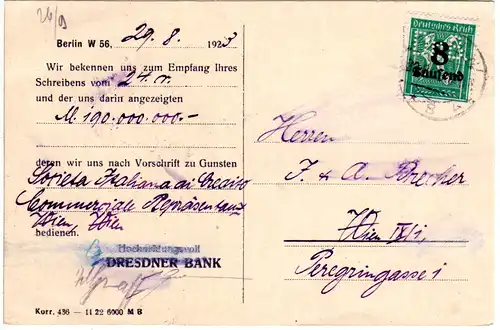 26/9
Berlin W 56, 29. 8. 1923
Wir bekennen uns zum Empfang Ihres
Schreibens vom 24. cr.
und der uns darin angezeigten
M. 190.000.000.-
deren wir uns nach Vorschrift zu Gunsten
Societa Italiana di Credito
Commerciale Repräsentanz
Wien, Wien
bedienen.
Hochachtungsvoll
DRESDNER BANK
Korr. 436 — 11 22 6000 M B
Deutsches Reich
8
Tausend
Herren
J. & A. Brecher
Wien IX/1,
Peregringasse 1